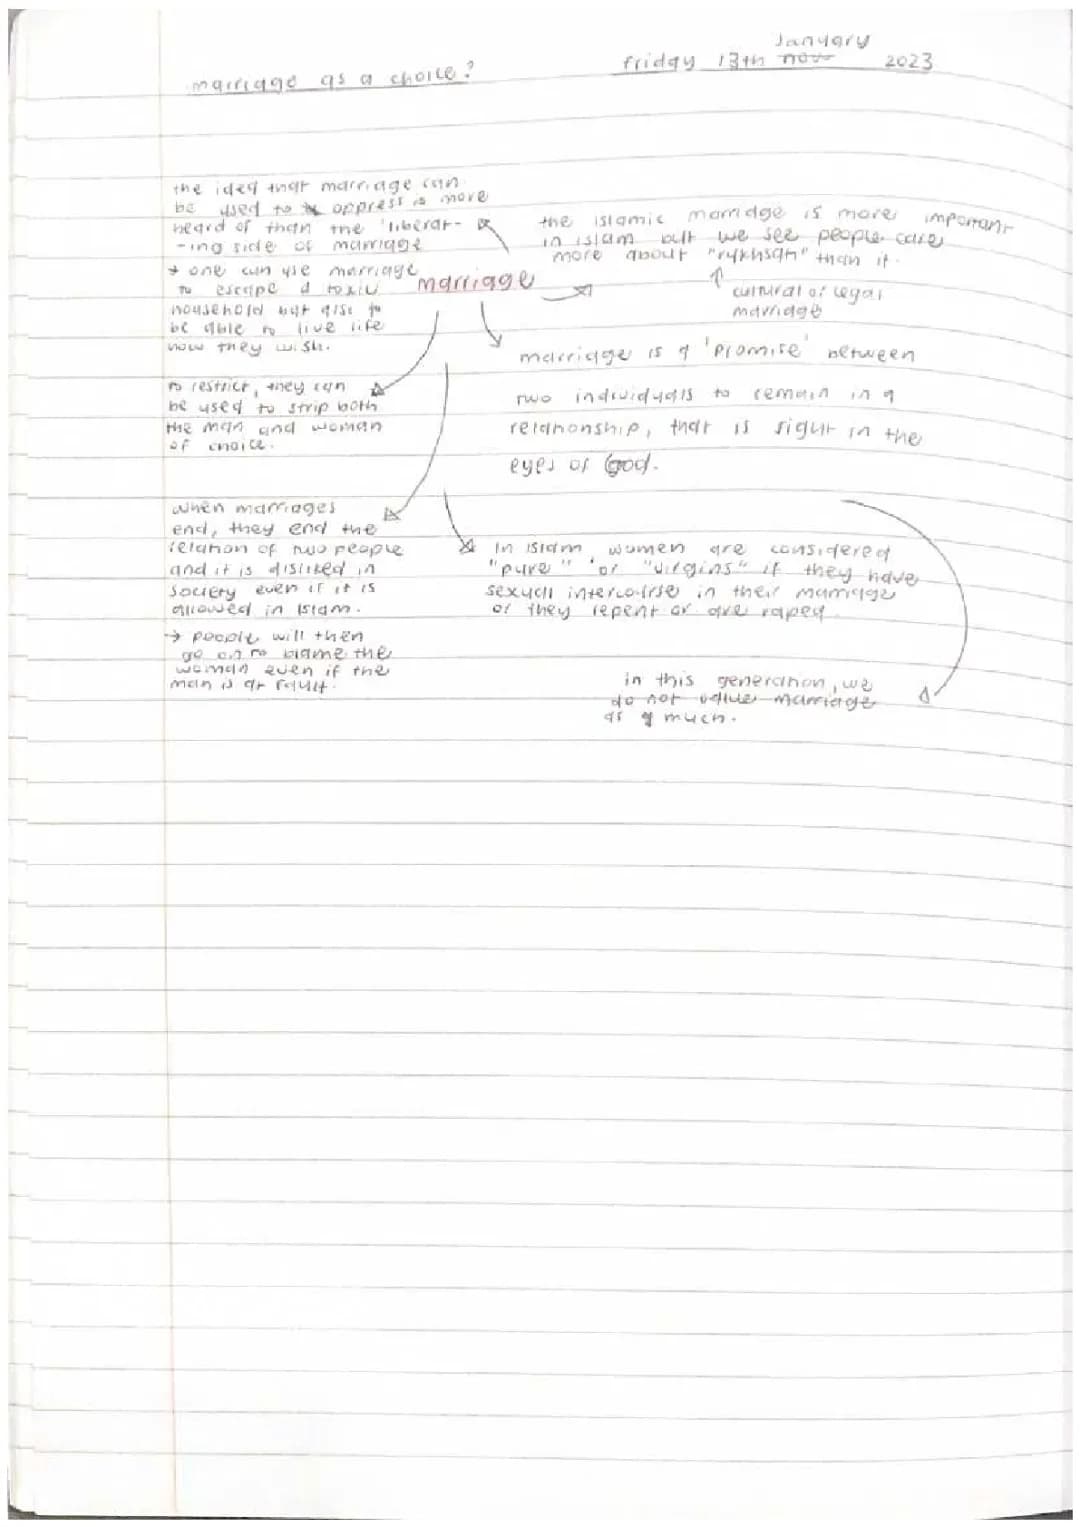 January
friday 13th nov 2023
marriage as a choice?
the idea that marriage can
be used to oppress is more
heard of than the 'liberat-
-ing side of marriage
→ one can use marriage
to escape a toxic
household but also to
be able to live life
how they wish.
the islamic marriage is more important
in islam but we see people care
more about "rukhsati" than it.
↑
cultural or legal
marriage
marriage
marriage is a 'promise' between
two individuals to remain in a
relationship, that is right in the
eyes of God.
to restrict, they can
be used to strip both
the man and woman
of choice.
when marriages
end, they end the
relation of two people
and it is disliked in
society even if it is
allowed in Islam.
→ people will then
go on to blame the
woman even if the
man is at fault.
In Islam, women are considered
"pure" or "virgins" if they have
sexual intercourse in their marriage
or they repent or are raped.
in this generation, we
do not value marriage
as much.